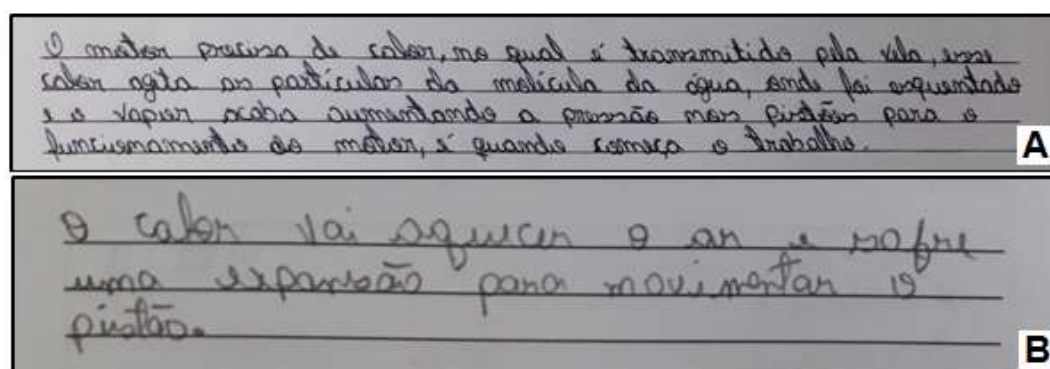 O motor precisa de calor, no qual é transmitido pela vela, esse
calor agita as partículas da molécula da água, onde foi esquentado
e o vapor acaba aumentando a pressão nos pistões para o
funcionamento do motor, é quando começa o trabalho.
A
O calor vai aquecer o ar e sofre
uma expansão para movimentar o
pistão.
B